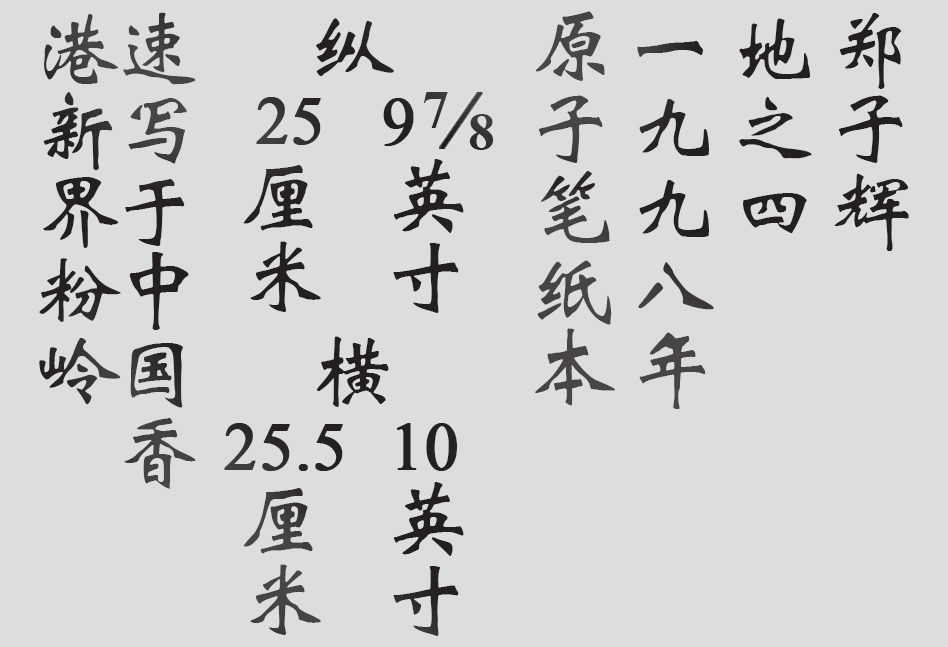 郑子辉
地之四
一九九八年
原子笔纸本
纵
9⅞英寸
25厘米
横
10英寸
25.5厘米
速写于中国香
港新界粉岭